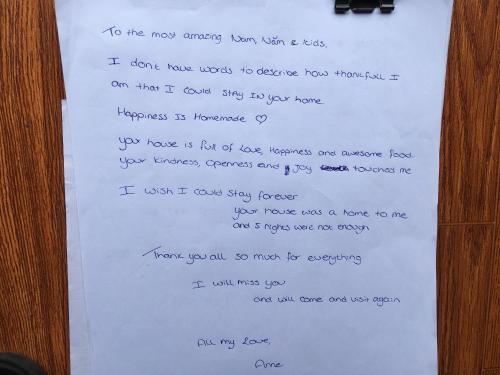 To the most amazing Nam, Năm & kids,
I dont have words to describe how thankfull I
am that I could stay in your home
Happiness is Homemade ♡
your house is full of love, Happiness and awesome food
your kindness, openness and joy touched me
I wish I could stay forever
your house was a home to me
and 5 nights were not enough
Thank you all so much for everything
I will miss you
and will come and visit again
All my love,
Anne